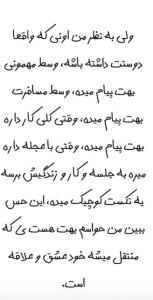 ولی به نظر من اونی که واقعا
دوستت داشته باشه، وسط مهمونی
بهت پیام میده، وسط مسافرت
بهت پیام میده، وقتی کلی کار داره
بهت پیام میده، وقتی با عجله داره
میره به جلسه و کار و زندگیش برسه
یه تکست کوچیک میده، این حس
ببین من حواسم بهت هست ی که
منتقل میشه خود عشق و علاقه
است.